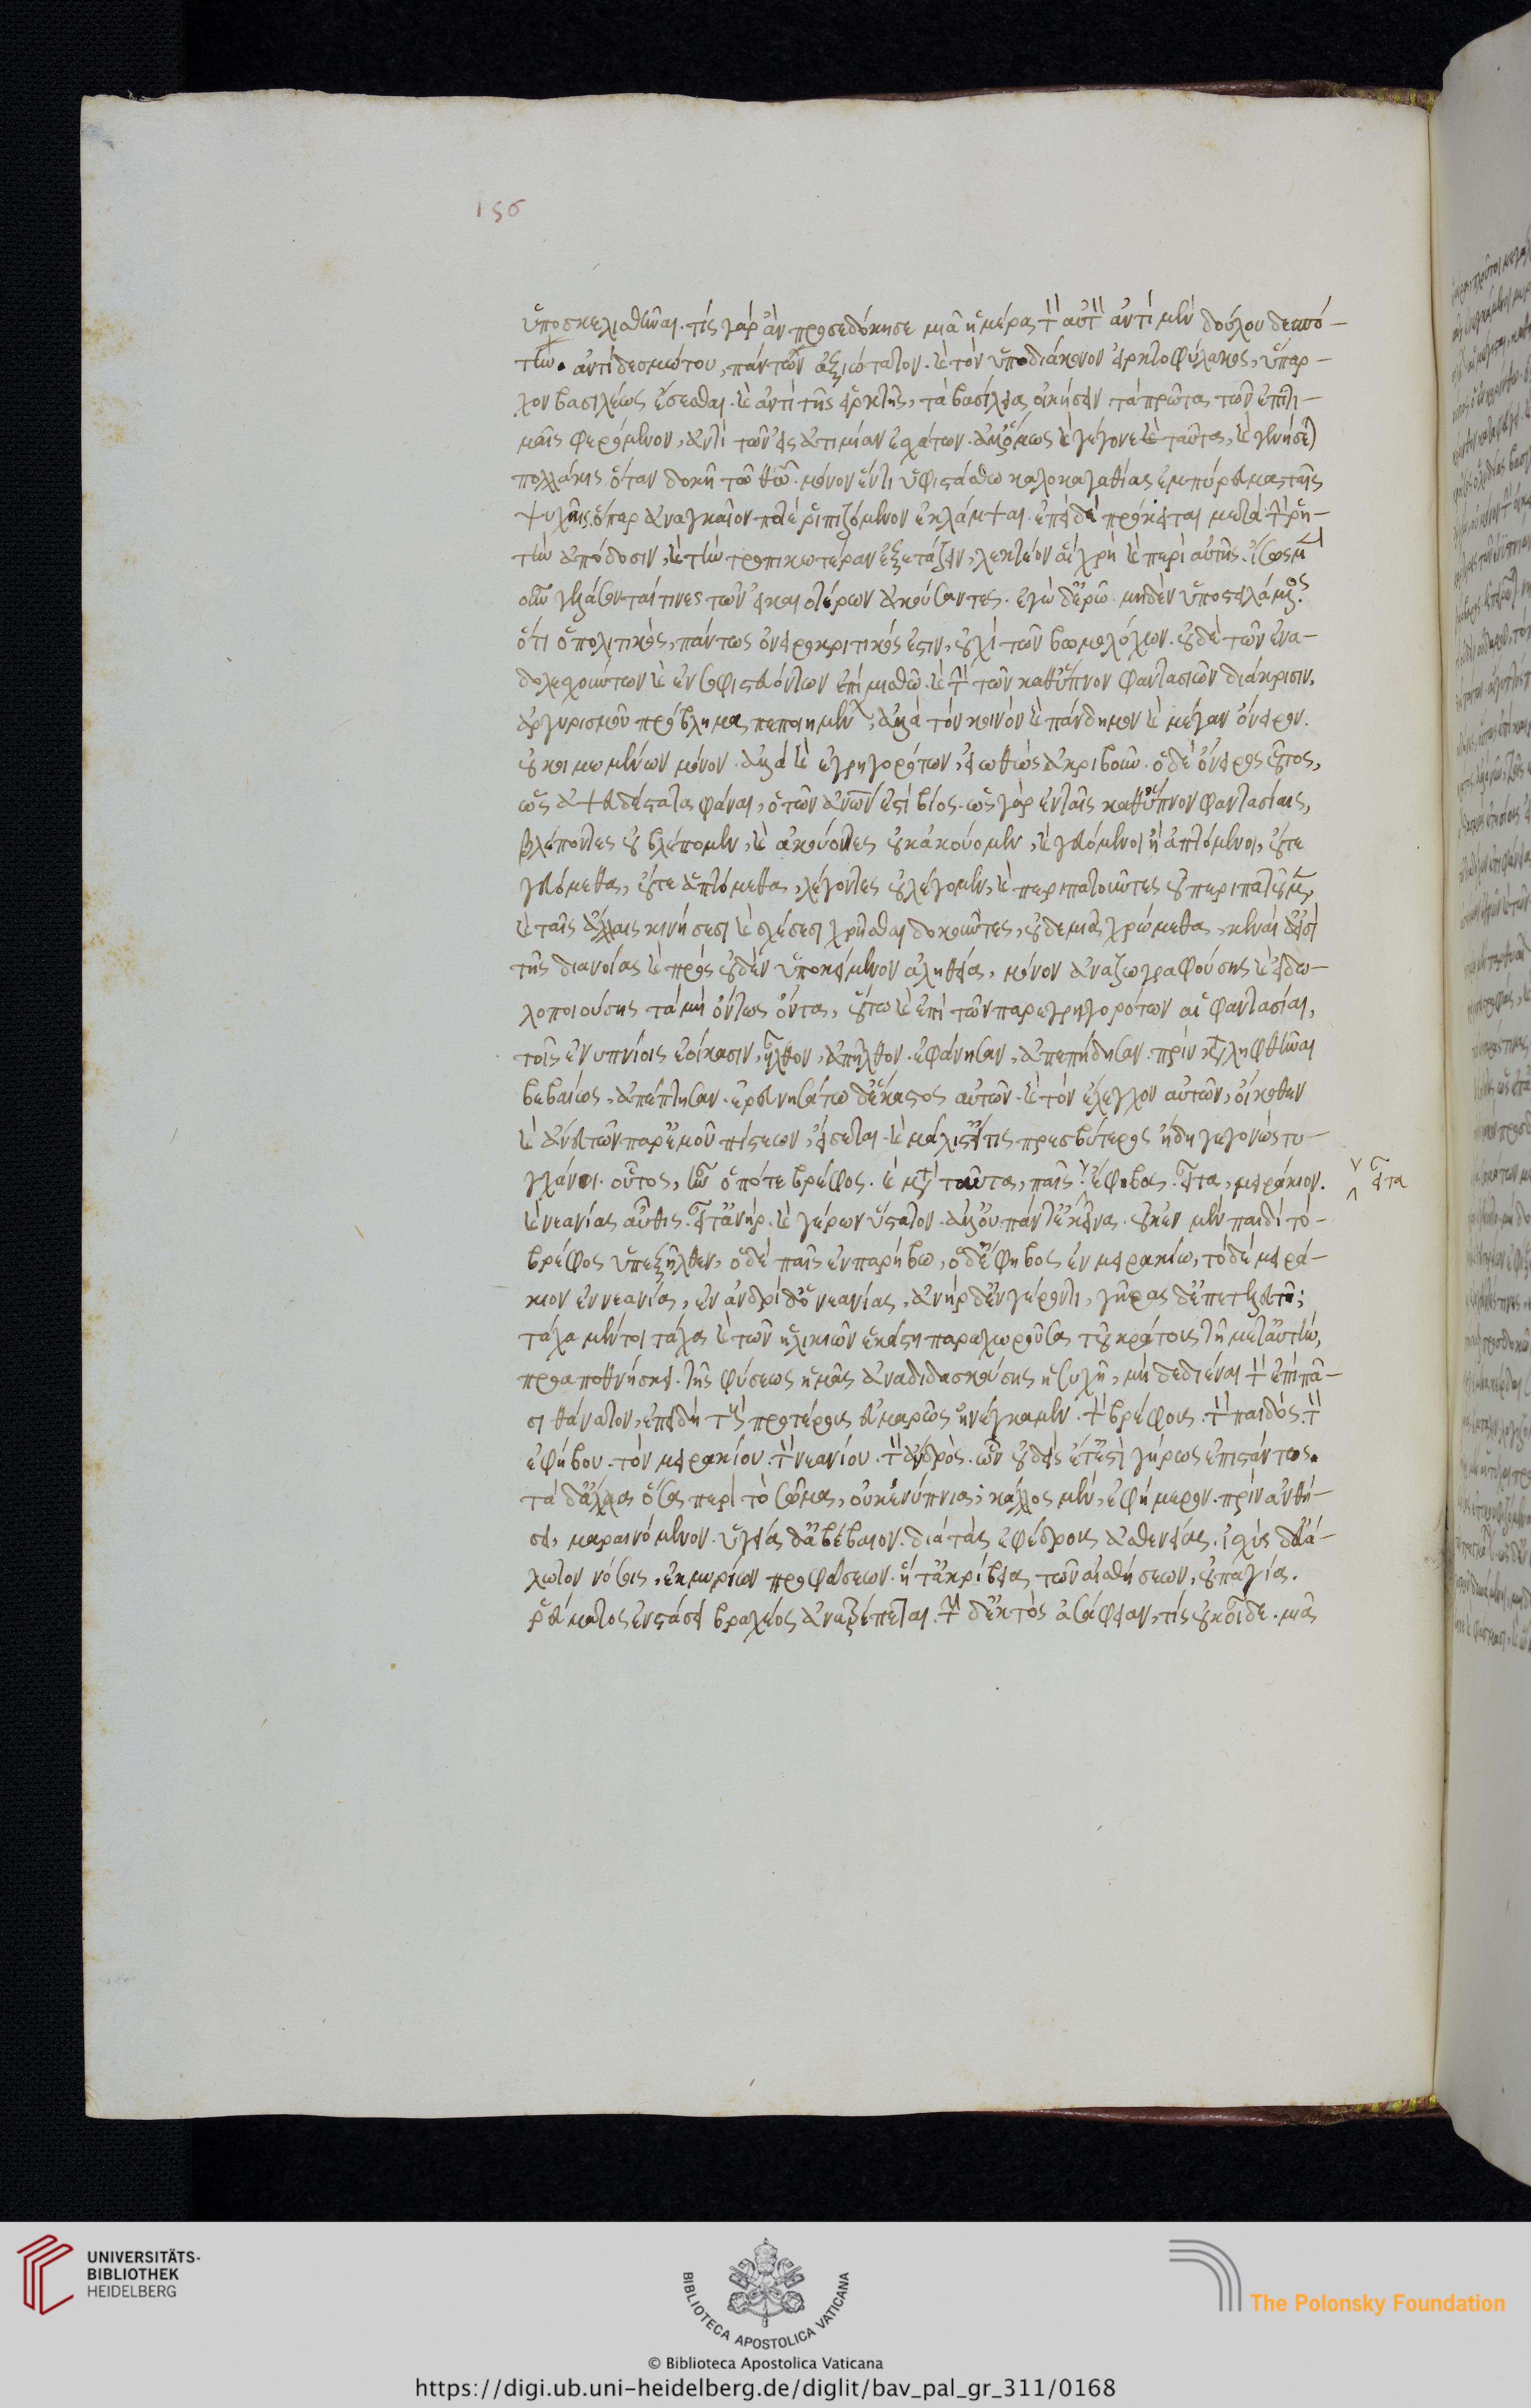 156
ὑποσκελισθῆναι. τίς γὰρ ἂν προσεδόκησε μιᾷ ἡμέρᾳ τὸν αὐτὸν ἀντὶ μὲν δούλου δεσπό-
την. ἀντὶ δεσμώτου, πάντων ἀξιώτατον. καὶ τὸν ὑποδιάκονον εἱρκτοφύλακος, ὕπαρ-
χον βασιλέως ἔσεσθαι. καὶ ἀντὶ τῆς εἱρκτῆς, τὰ βασίλεια οἰκήσειν τὰ πρῶτα τῶν ἐπὶ τι-
μαῖς φερόμενον, ἀντὶ τῶν εἰς ἀτιμίαν ἐσχάτων. ἀλλ' ὅμως καὶ γέγονε καὶ ταῦτα, καὶ γενήσεται
πολλάκις ὅταν δοκῇ τῷ θεῷ. μόνον ἔν τι ὑφιστάσθω καλοκαγαθίας ἐμπύρευμα ταῖς
ψυχαῖς, ὅπερ ἀναγκαῖον ποτὲ ῥιπιζόμενον ἐκλάμψαι. ἐπεὶ δὲ πρόκειται μετὰ τὴν ῥη-
τὴν ἀπόδοσιν, καὶ τὴν τροπικωτέραν ἐξετάζειν, λεκτέον ἃ χρὴ καὶ περὶ αὐτῆς. ἴσως μὲν
οὖν γελάσονταί τινες τῶν εἰκαιοτέρων ἀκούσαντες. ἐγὼ δ' ἐρῶ μηδὲν ὑποστειλάμενος.
ὅτι ὁ πολιτικὸς, πάντως ὀνειροκριτικός ἐστιν, οὐχὶ τῶν βωμολόχων. οὐδὲ τῶν ἐνα-
δολεσχούντων καὶ ἐνσοφιστευόντων ἐπὶ μισθῷ. καὶ τὴν τῶν καθ' ὕπνον φαντασιῶν διάκρισιν,
ἀργυρισμοῦ πρόβλημα πεποιημένων, ἀλλὰ τὸν κοινὸν καὶ πάνδημον καὶ μέγαν ὄνειρον.
οὐ κοιμωμένων μόνον. ἀλλὰ καὶ ἐγρηγορότων, εἰωθὼς ἀκριβοῦν. ὁ δὲ ὄνειρος οὗτος,
ὡς ἀψευδέστατα φάναι, ὁ τῶν ἀνθρώπων ἐστὶ βίος. ὡς γὰρ ἐν ταῖς καθ' ὕπνον φαντασίαις,
βλέποντες οὐ βλέπομεν, καὶ ἀκούοντες οὐκ ἀκούομεν, καὶ γευόμενοι ἢ ἁπτόμενοι, οὔτε
γευόμεθα, οὔτε ἁπτόμεθα, λέγοντες οὐ λέγομεν, καὶ περιπατοῦντες οὐ περιπατοῦμεν,
καὶ ταῖς ἄλλαις κινήσεσι καὶ σχέσεσι χρῆσθαι δοκοῦντες, οὐδεμιᾷ χρώμεθα, κεναὶ δ' εἰσὶ
τῆς διανοίας καὶ πρὸς οὐδὲν ὑποκείμενον ἀληθείᾳ, μόνον ἀναζωγραφούσης καὶ εἰδω-
λοποιούσης τὰ μὴ ὄντως ὄντα, οὕτω καὶ ἐπὶ τῶν παρεγρηγορότων αἱ φαντασίαι,
τοῖς ἐνυπνίοις ἐοίκασιν, ἦλθον, ἀπῆλθον. ἐφάνησαν, ἀπεπήδησαν. πρὶν καταληφθῆναι
βεβαίως, ἀπέπτησαν. ἐρευνησάτω δ' ἕκαστος αὐτῶν. καὶ τὸν ἔλεγχον αὐτῶν, οἴκοθεν
καὶ ἄνευ τῶν παρ' ἐμοῦ πίστεων, εἴσεται. καὶ μάλιστ' εἴ τις πρεσβύτερος ἤδη γεγονὼς τυ-
γχάνοι. οὗτος, ἦν ὁ ποτὲ βρέφος. καὶ μετὰ ταῦτα, παῖς. ἔφηβος. εἶτα, μειράκιον.
εἶτα
καὶ νεανίας αὖθις. εἶτ' ἀνὴρ. καὶ γέρων ὕστατον. ἀλλ' οὐ πάντ' ἐκεῖνα. οὐκ ἐν μὲν παιδὶ τὸ
βρέφος ὑπεξῆλθεν, ὁ δὲ παῖς ἐν παρήβῳ, ὁ δ' ἔφηβος ἐν μειρακίῳ, τὸ δὲ μειρά-
κιον ἐν νεανίᾳ, ἐν ἀνδρὶ δ' ὁ νεανίας, ἀνὴρ δ' ἐν γέροντι, γήρᾳ δ' ἕπεται τελευτή;
τάχα μέντοι τάχα καὶ τῶν ἡλικιῶν ἑκάστη παραχωροῦσα τοῦ κράτους τῇ μετ' αὐτὴν,
προαποθνήσκει. τῆς φύσεως ἡμᾶς ἀναδιδασκούσης ἡσυχῇ, μὴ δεδιέναι τὸν ἐπὶ πᾶ-
σι θάνατον, ἐπειδὴ τοὺς προτέρους εὐμαρῶς ἠνέγκαμεν. τὸν βρέφους. τὸν παιδός. τὸν
ἐφήβου. τὸν μειρακίου. τὸν νεανίου. τὸν ἀνδρὸς. ὧν οὐδεὶς ἔτ' ἐστὶ γήρως ἐπιστάντος.
τὰ δ' ἄλλα ὅσα περὶ τὸ σῶμα, οὐκ ἐνύπνια; κάλλος μὲν, ἐφήμερον. πρὶν ἀνθῆ-
σαι, μαραινόμενον. ὑγεία δ' ἀβέβαιον. διὰ τὰς ἐφέδρους ἀσθενείας. ἰσχὺς δ' εὐά-
λωτον νόσοις, ἐκ μυρίων προφάσεων. ἥ τ' ἀκρίβεια τῶν αἰσθήσεων, οὐ παγία.
ῥεύματος ἐνστάσει βραχέος ἀνατρέπεται. τὴν δ' ἐκτὸς ἀσάφειαν, τίς οὐκ οἶδε. μιᾷ
UNIVERSITÄTS-
BIBLIOTHEK
HEIDELBERG
BIBLIOTECA APOSTOLICA VATICANA
The Polonsky Foundation
© Biblioteca Apostolica Vaticana
https://digi.ub.uni-heidelberg.de/diglit/bav_pal_gr_311/0168